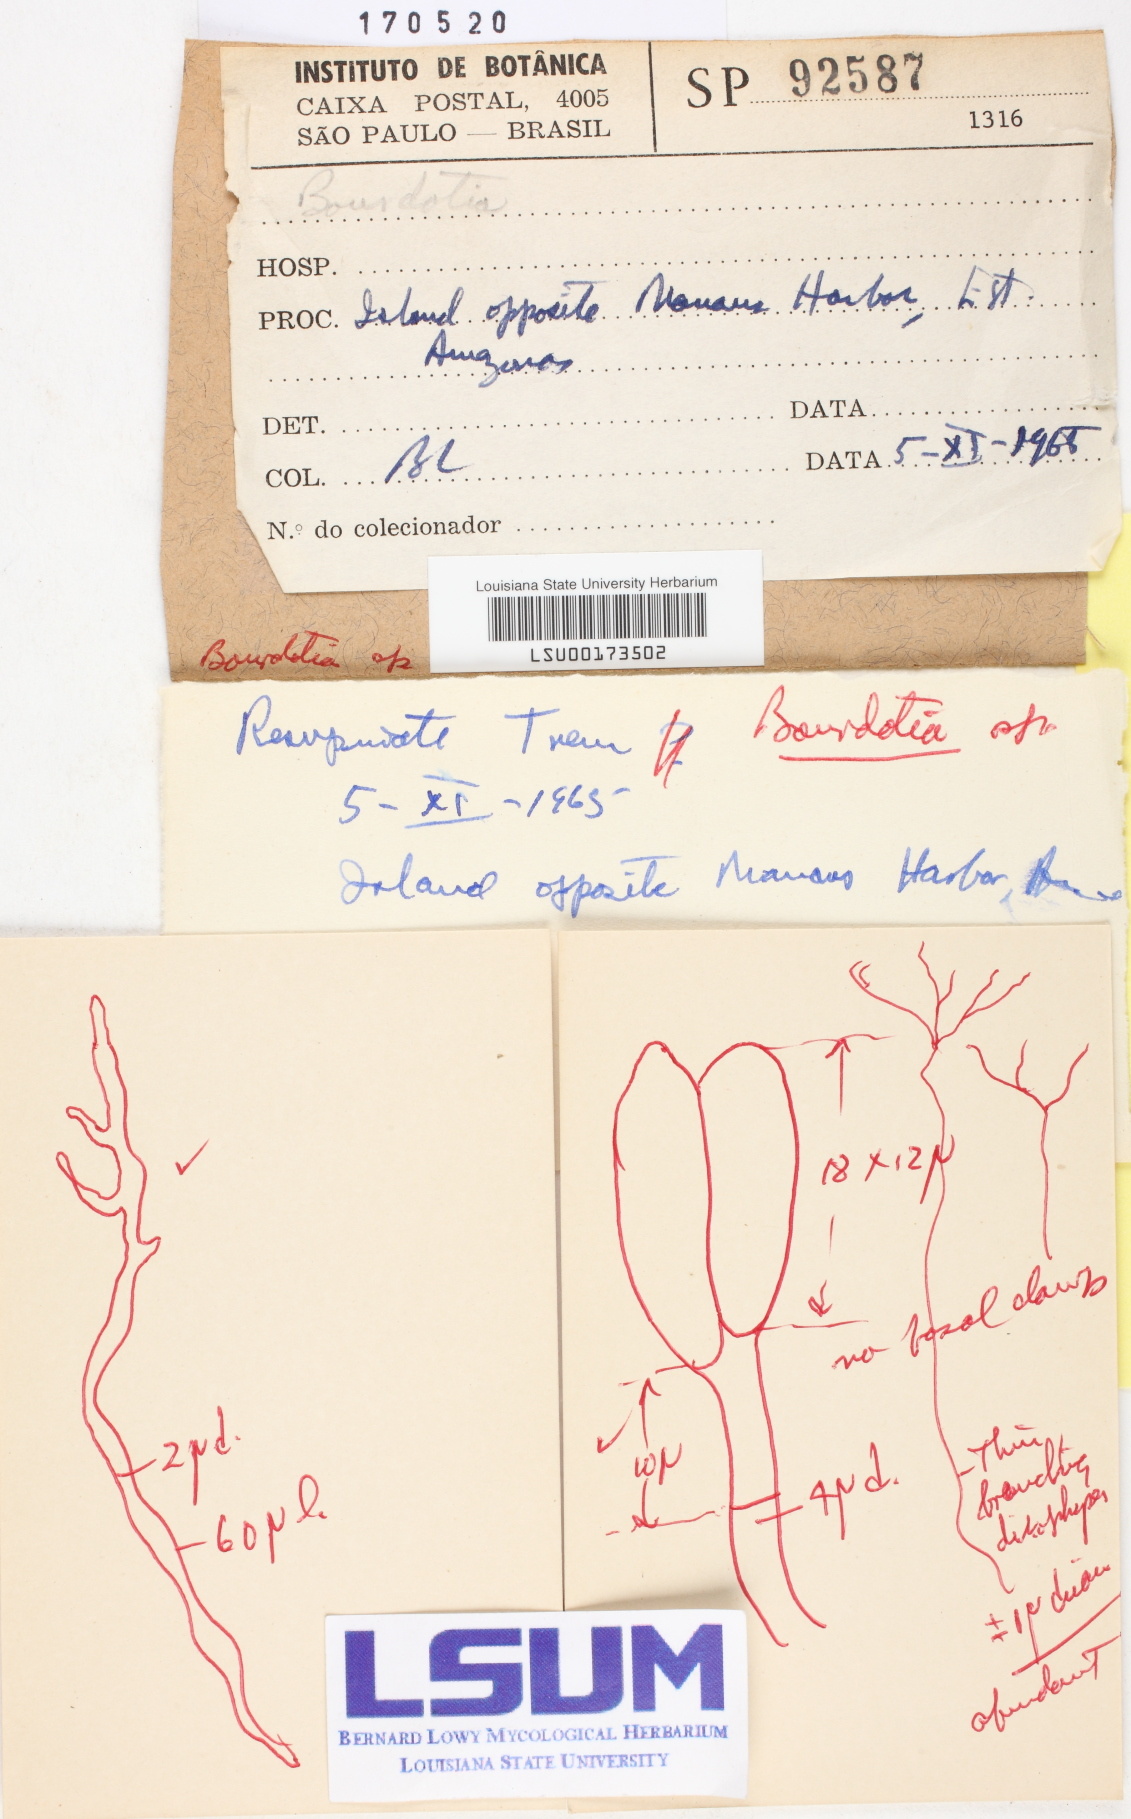 170520
INSTITUTO DE BOTÂNICA
CAIXA POSTAL, 4005
SÃO PAULO — BRASIL
SP 92587
1316
Bourdotia
HOSP.
PROC. Island opposite Manaus Harbor, Est.
Amazonas
DET. DATA
COL. BL DATA 5-XI-1965
N.º do colecionador
Louisiana State University Herbarium
LSU00173502
Bourdotia sp
Resupinate Trem Bourdotia sp.
5-XI-1965
Island opposite Manaus Harbor,
2μ d.
60μ l.
18 X 12μ
no basal clamps
10μ
4μ d.
Thin
branching
dikophyses
±1μ diam
abundant
LSUM
BERNARD LOWY MYCOLOGICAL HERBARIUM
LOUISIANA STATE UNIVERSITY